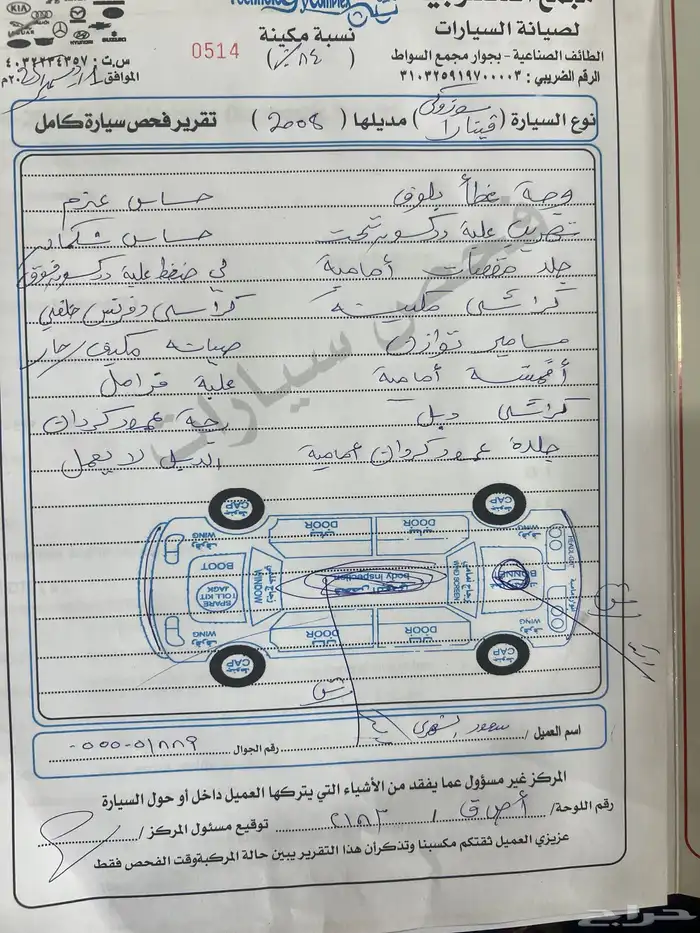 Technology Complex
لصيانة السيارات
الطائف الصناعية - بجوار مجمع السواط
الرقم الضريبي : ٣١٠٣٢٥٩١٩٧٠٠٠٠٣
نسبة مكينة
( ٨٤ ٪ )
0514
KIA
AUDI
HYUNDAI
SUZUKI
س.ت : ٤٠٣٢٢٣٤٣٥٧
الموافق
نوع السيارة ( سوزوكي فيتارا ) مديلها ( 2008 ) تقرير فحص سيارة كامل
وجة غطأ بلوف
حساس عزم
تهريب علبة دركسون تحت
حساس شكمان
جلد مقصات أمامية
في ضغط علبة دركسون فوق
كراسي مكينة
كراسي دفرنس خلفي
مسامير توازن
صيانة مكيف / حار
أقمشة أمامية
علبة قراصل
كراسي دبل
رجة عمود كردان
جلدة عمود كردان امامية
الدبل لا يعمل
CAP
CAP
WING
DOOR
DOOR
WING
BOOT
SPARE TOLL KIT JACK
WINDOW
body inspection
WIND SCREEN
WING
DOOR
DOOR
WING
CAP
CAP
رش
رش
اسم العميل / سعود الشهري
رقم الجوال
المركز غير مسؤول عما يفقد من الأشياء التي يتركها العميل داخل أو حول السيارة
رقم اللوحة / أ ص ق / ٢١٨٣ توقيع مسئول المركز /
عزيزي العميل ثقتكم مكسبنا وتذكرأن هذا التقرير يبين حالة المركبةوقت الفحص فقط
فحص سيارات
حراج